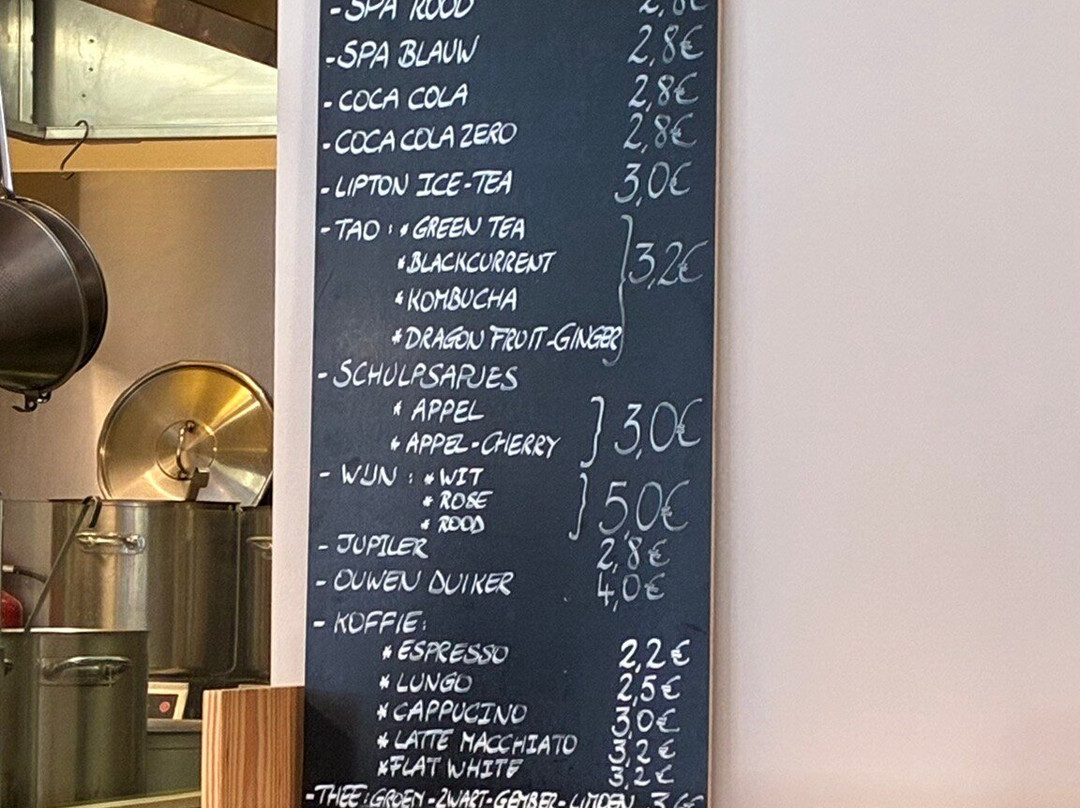 - SPA ROOD 2,8€
- SPA BLAUW 2,8€
- COCA COLA 2,8€
- COCA COLA ZERO 2,8€
- LIPTON ICE-TEA 3,0€
- TAO : * GREEN TEA
* BLACKCURRENT 3,2€
* KOMBUCHA
* DRAGON FRUIT-GINGER
- SCHULPSAPJES
* APPEL
* APPEL-CHERRY 3,0€
- WIJN : * WIT
* ROSE 5,0€
* ROOD
- JUPILER 2,8€
- OUWEN DUIKER 4,0€
- KOFFIE:
* ESPRESSO 2,2€
* LUNGO 2,5€
* CAPPUCINO 3,0€
* LATTE MACCHIATO 3,2€
* FLAT WHITE 3,2€
- THEE : GROEN - ZWART - GEMBER - LINDEN